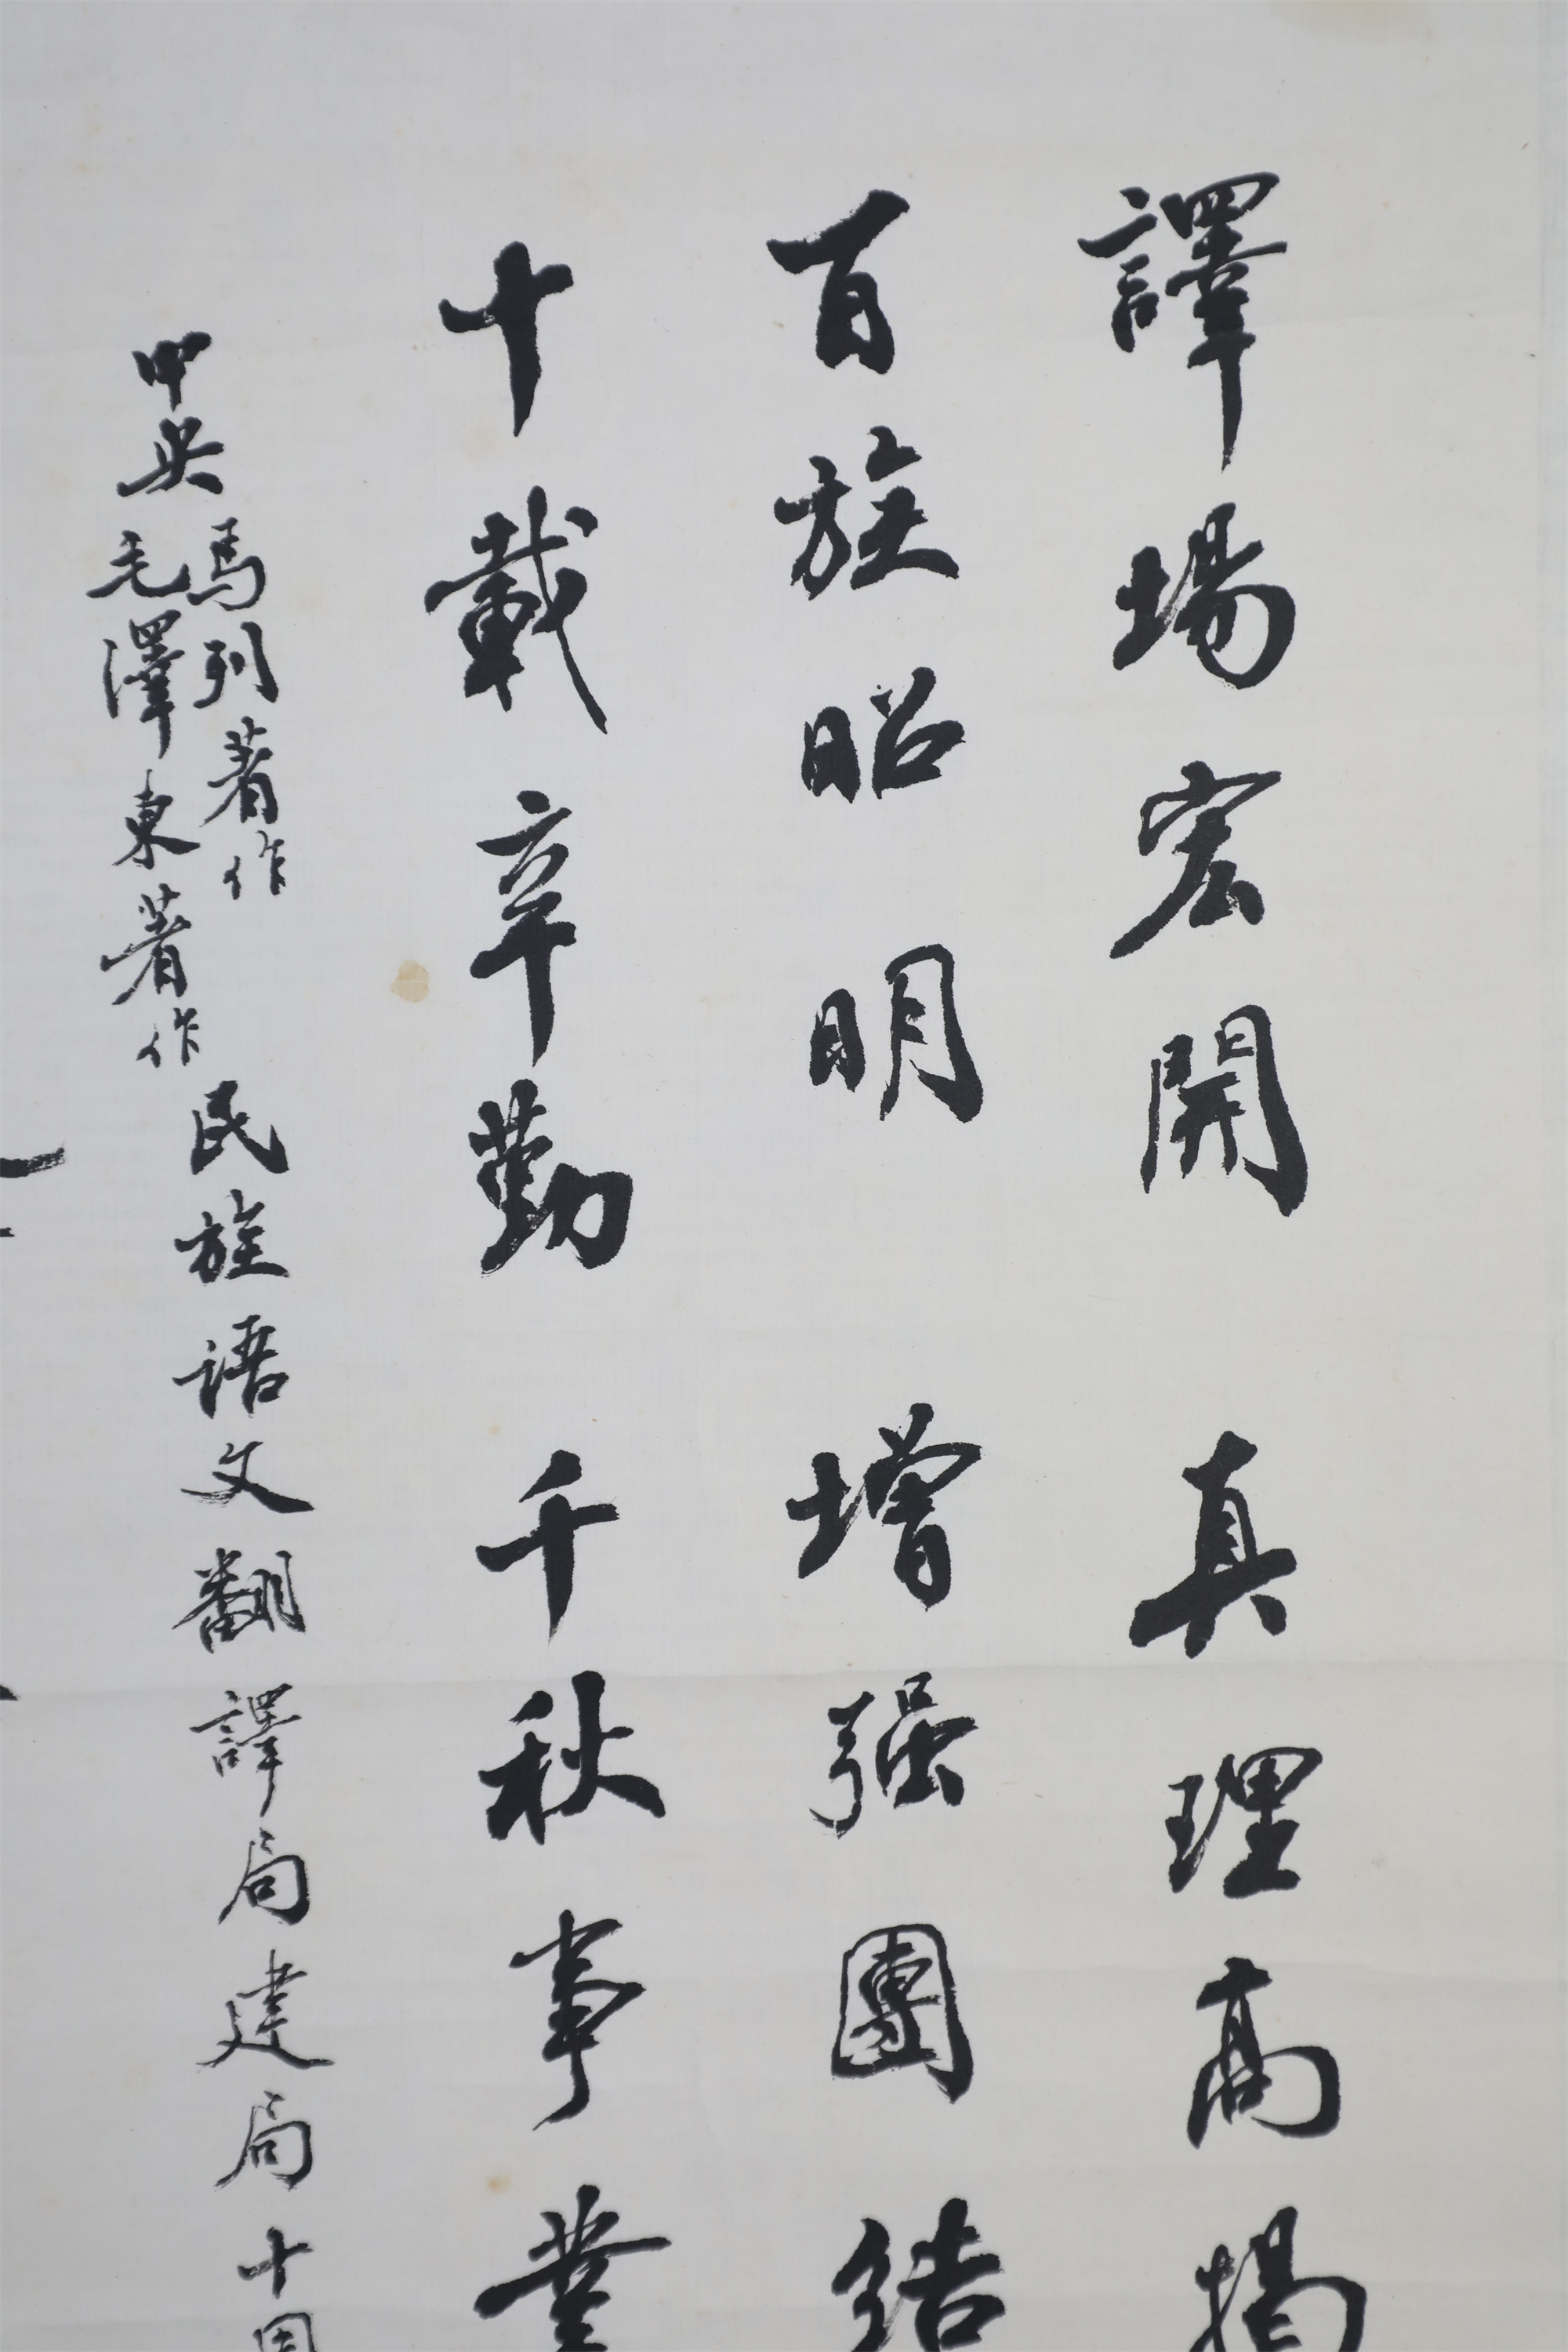 譯場宏開 真理高揭
百族昭明 增强團結
十載辛勤 千秋事業
中央
馬列著作
毛澤東著作
民族语文翻譯局建局十周